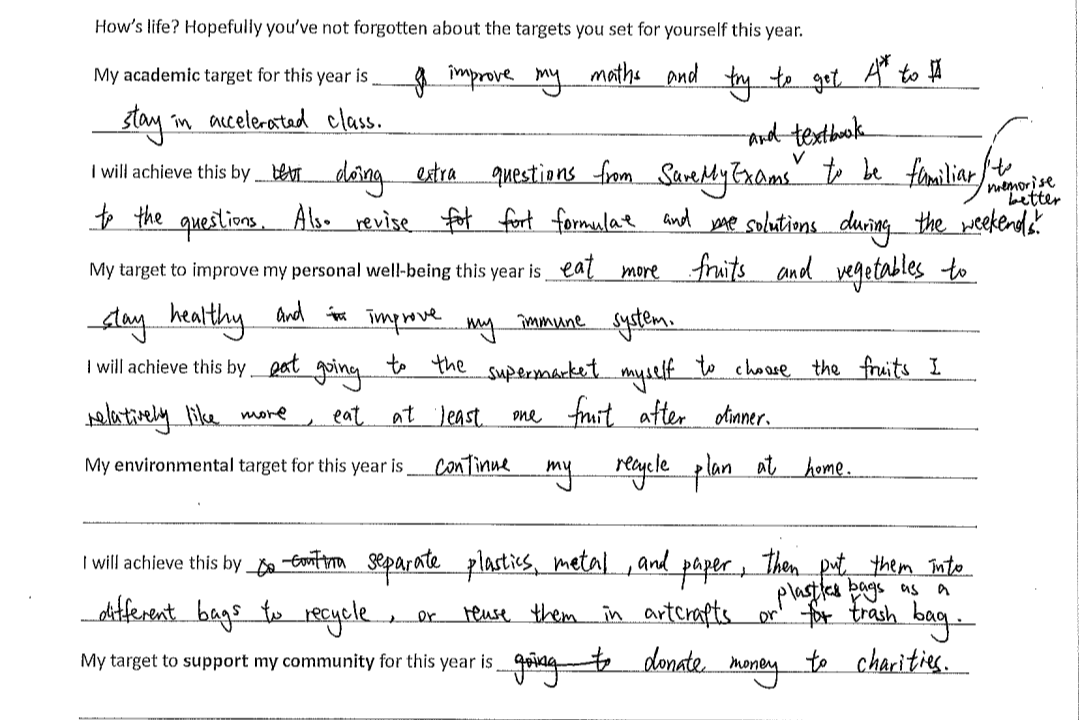 How's life? Hopefully you've not forgotten about the targets you set for yourself this year.
My academic target for this year is improve my maths and try to get A* to
stay in accelerated class.
and textbook
I will achieve this by doing extra questions from SaveMyExams to be familiar
to memorise better
to the questions. Also revise fort formulae and solutions during the weekends.
My target to improve my personal well-being this year is eat more fruits and vegetables to
stay healthy and improve my immune system.
I will achieve this by going to the supermarket myself to choose the fruits I
relatively like more, eat at least one fruit after dinner.
My environmental target for this year is continue my recycle plan at home.
I will achieve this by separate plastics, metal, and paper, then put them into
plastics bags as a
different bags to recycle, or reuse them in artcrafts or trash bag.
My target to support my community for this year is donate money to charities.